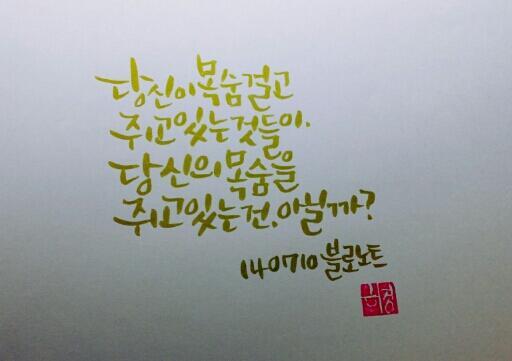 당신이 목숨걸고
쥐고 있는 것들이.
당신의 목숨을
쥐고 있는 건, 아닐까?
140710 블로노트